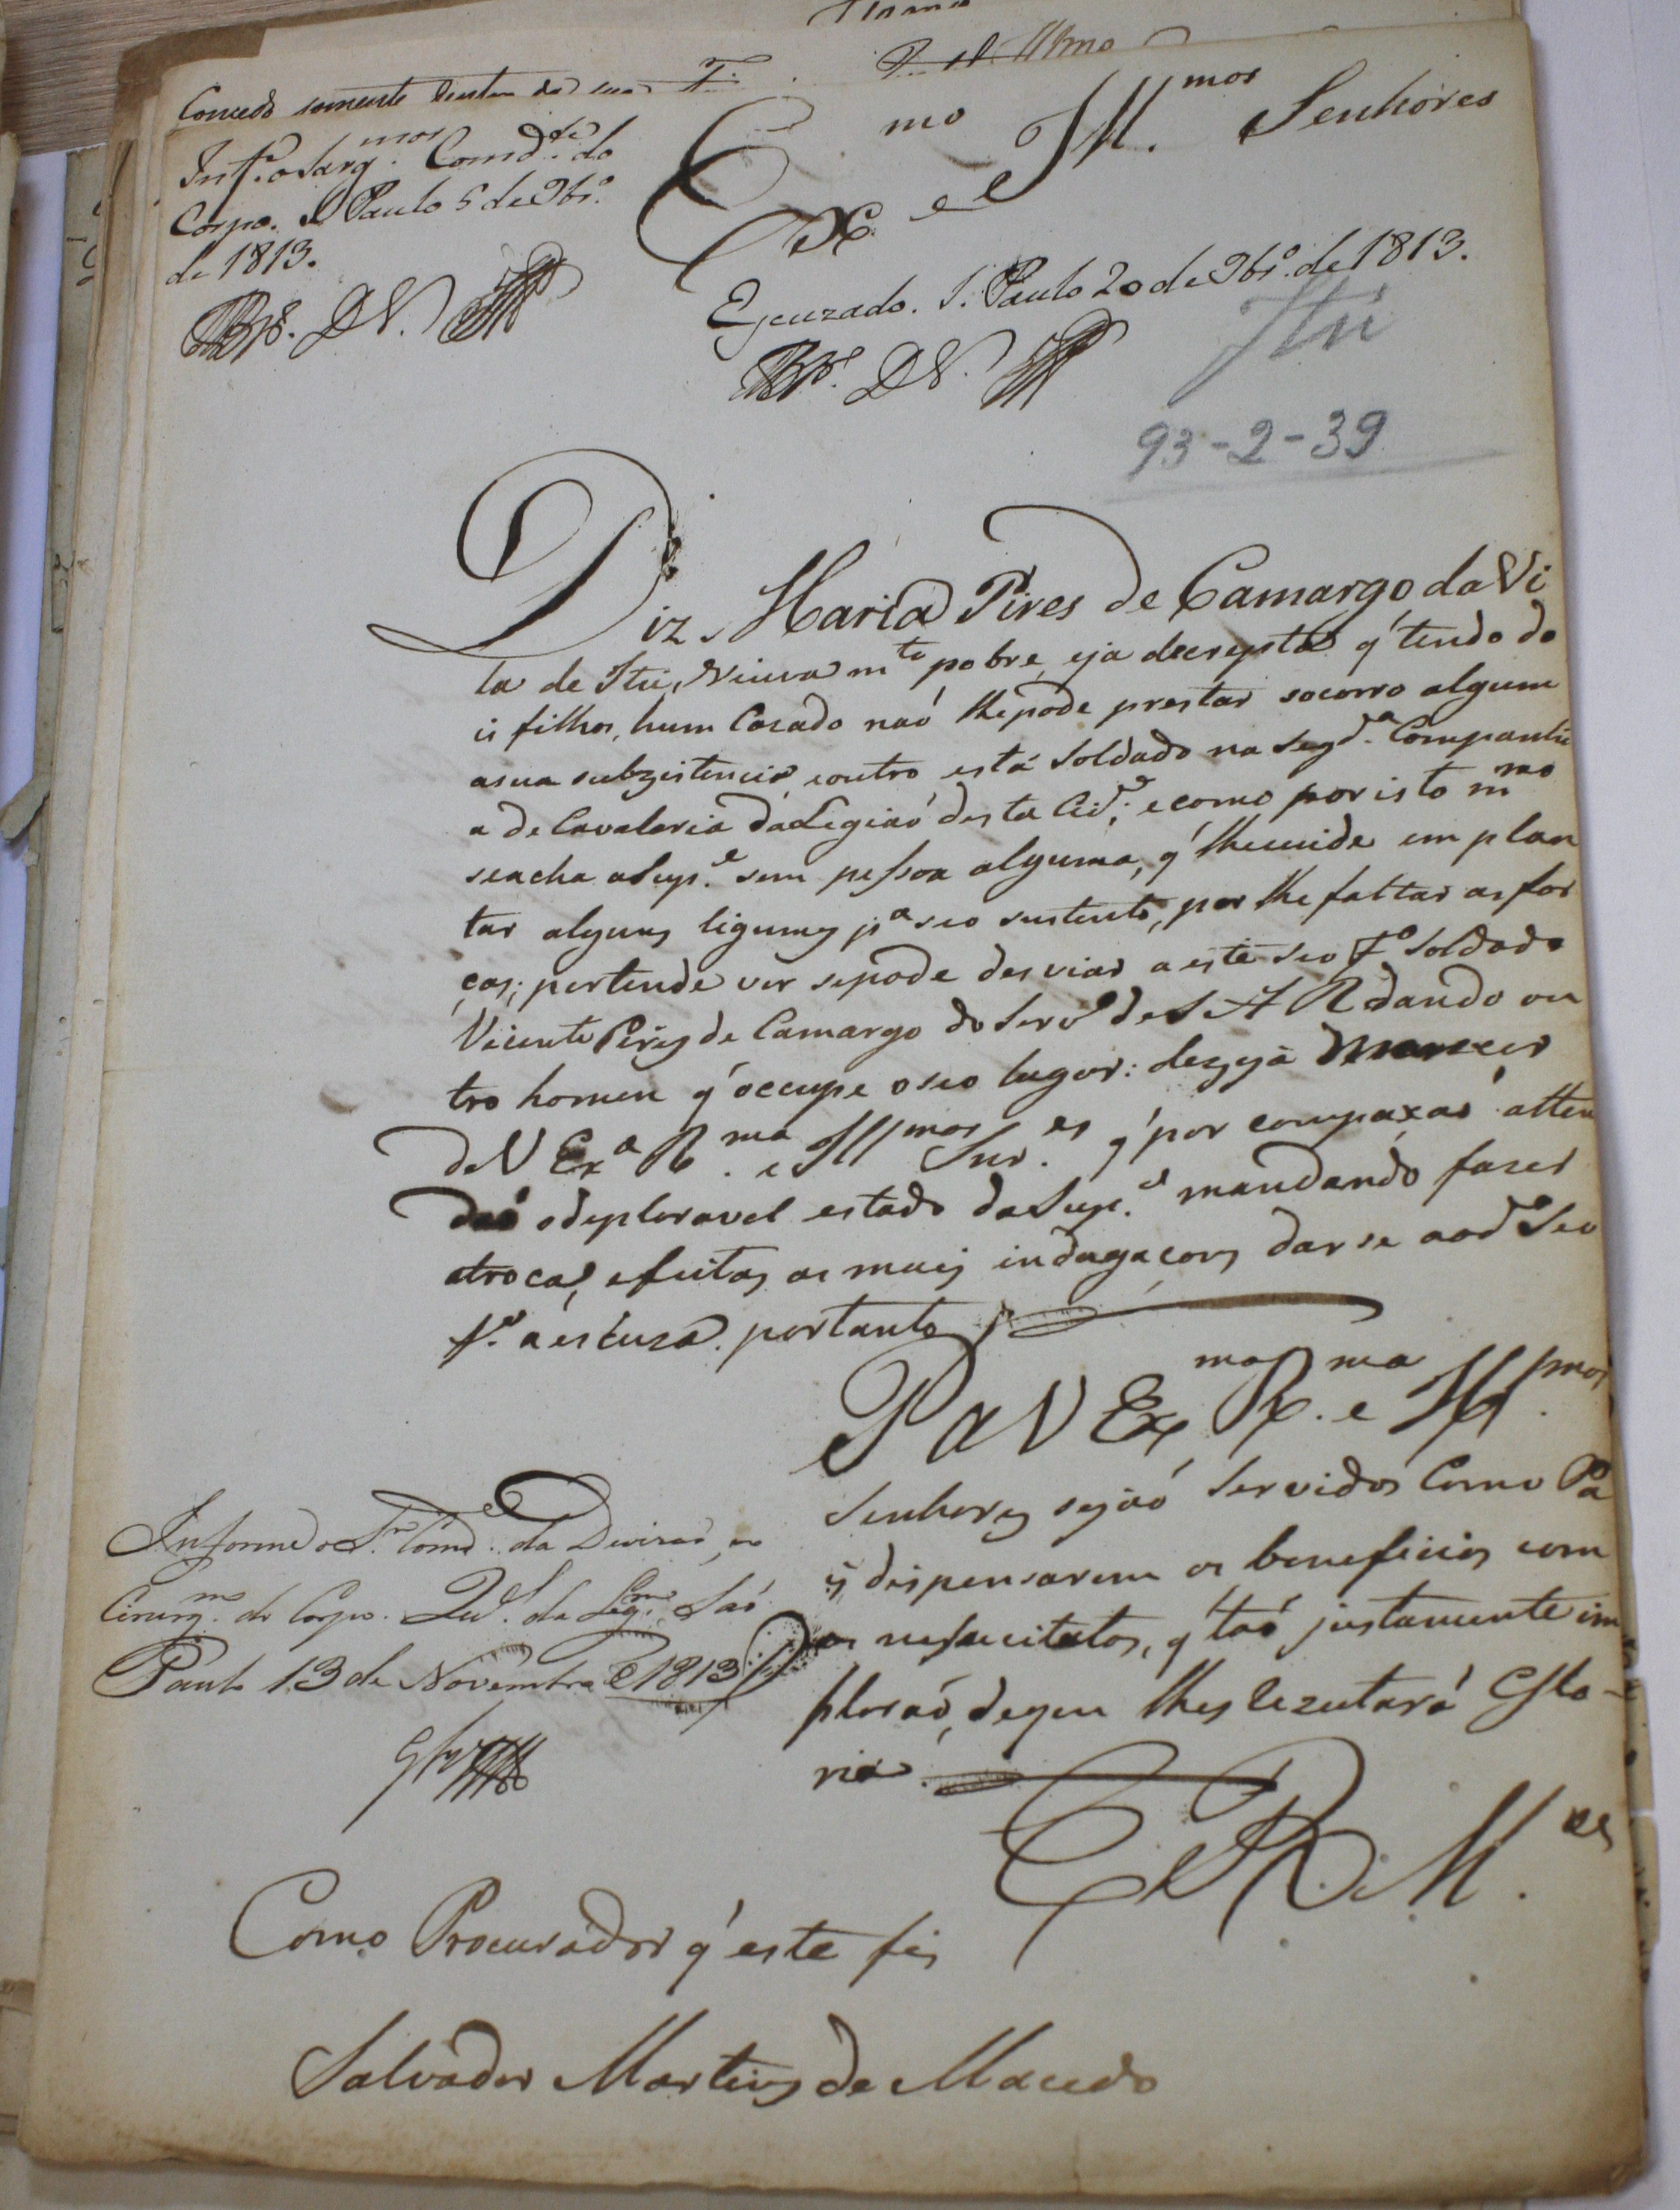 Concedo somente dentro da sua
Inf.e o Sarg.mor Comd.te do
Corpo. S. Paulo 5 de 9br.o
de 1813.
Ex.mo e Ill.mos Senhores
Escuzado. S. Paulo 20 de 9br.o de 1813.
Itú
93-2-39
Diz Maria Pires de Camargo da Vi
la de Itú, Viuva m.to pobre, e já decrepta q' tendo do
is filhos, hum Cazado naó lhe pode prestar socorro algum
a sua subzistencia, e outro está Soldado na Seg.da Companhi
a de Cavalaria da Legiaó desta Cid.e; e como por isto m.mo
se acha a Sup.e sem pessoa alguma, q' lhe cuide em plan
tar alguns ligumes p.a seo sustento, por lhe faltar as for
ças; pertende ver se pode desviar a este seo F.o Soldado
Vicente Pires de Camargo do Serv.o de S A R dando ou
tro homem q' occupe o seo lugar: dezeja merecer
de V Ex.a R.ma e Ill.mos Snr.es q' por compaxaó atten
daó o deploravel estado da Sup.e mandando fazer
a troca, e feitas as mais indagaçoens dar se ao d.o Seo
f.o a escuza. portanto
P a V Ex.ma R.ma e Ill.mos
Senhores sejaó Servidos Como Pa
is dispensarem os beneficios com
os nessecitados, q' taó justamente im
ploraó, de q̃m lhes rezultará Glo-
ria.
E. R. M.ces
Informe o S.r Com.e da Divizaó, e o
Cirurg.m do Corpo. Qu.el da Leg.m Saó
Paulo 13 de Novembro de 1813
Como Procurador q' este fis
Salvador Martins de Macedo